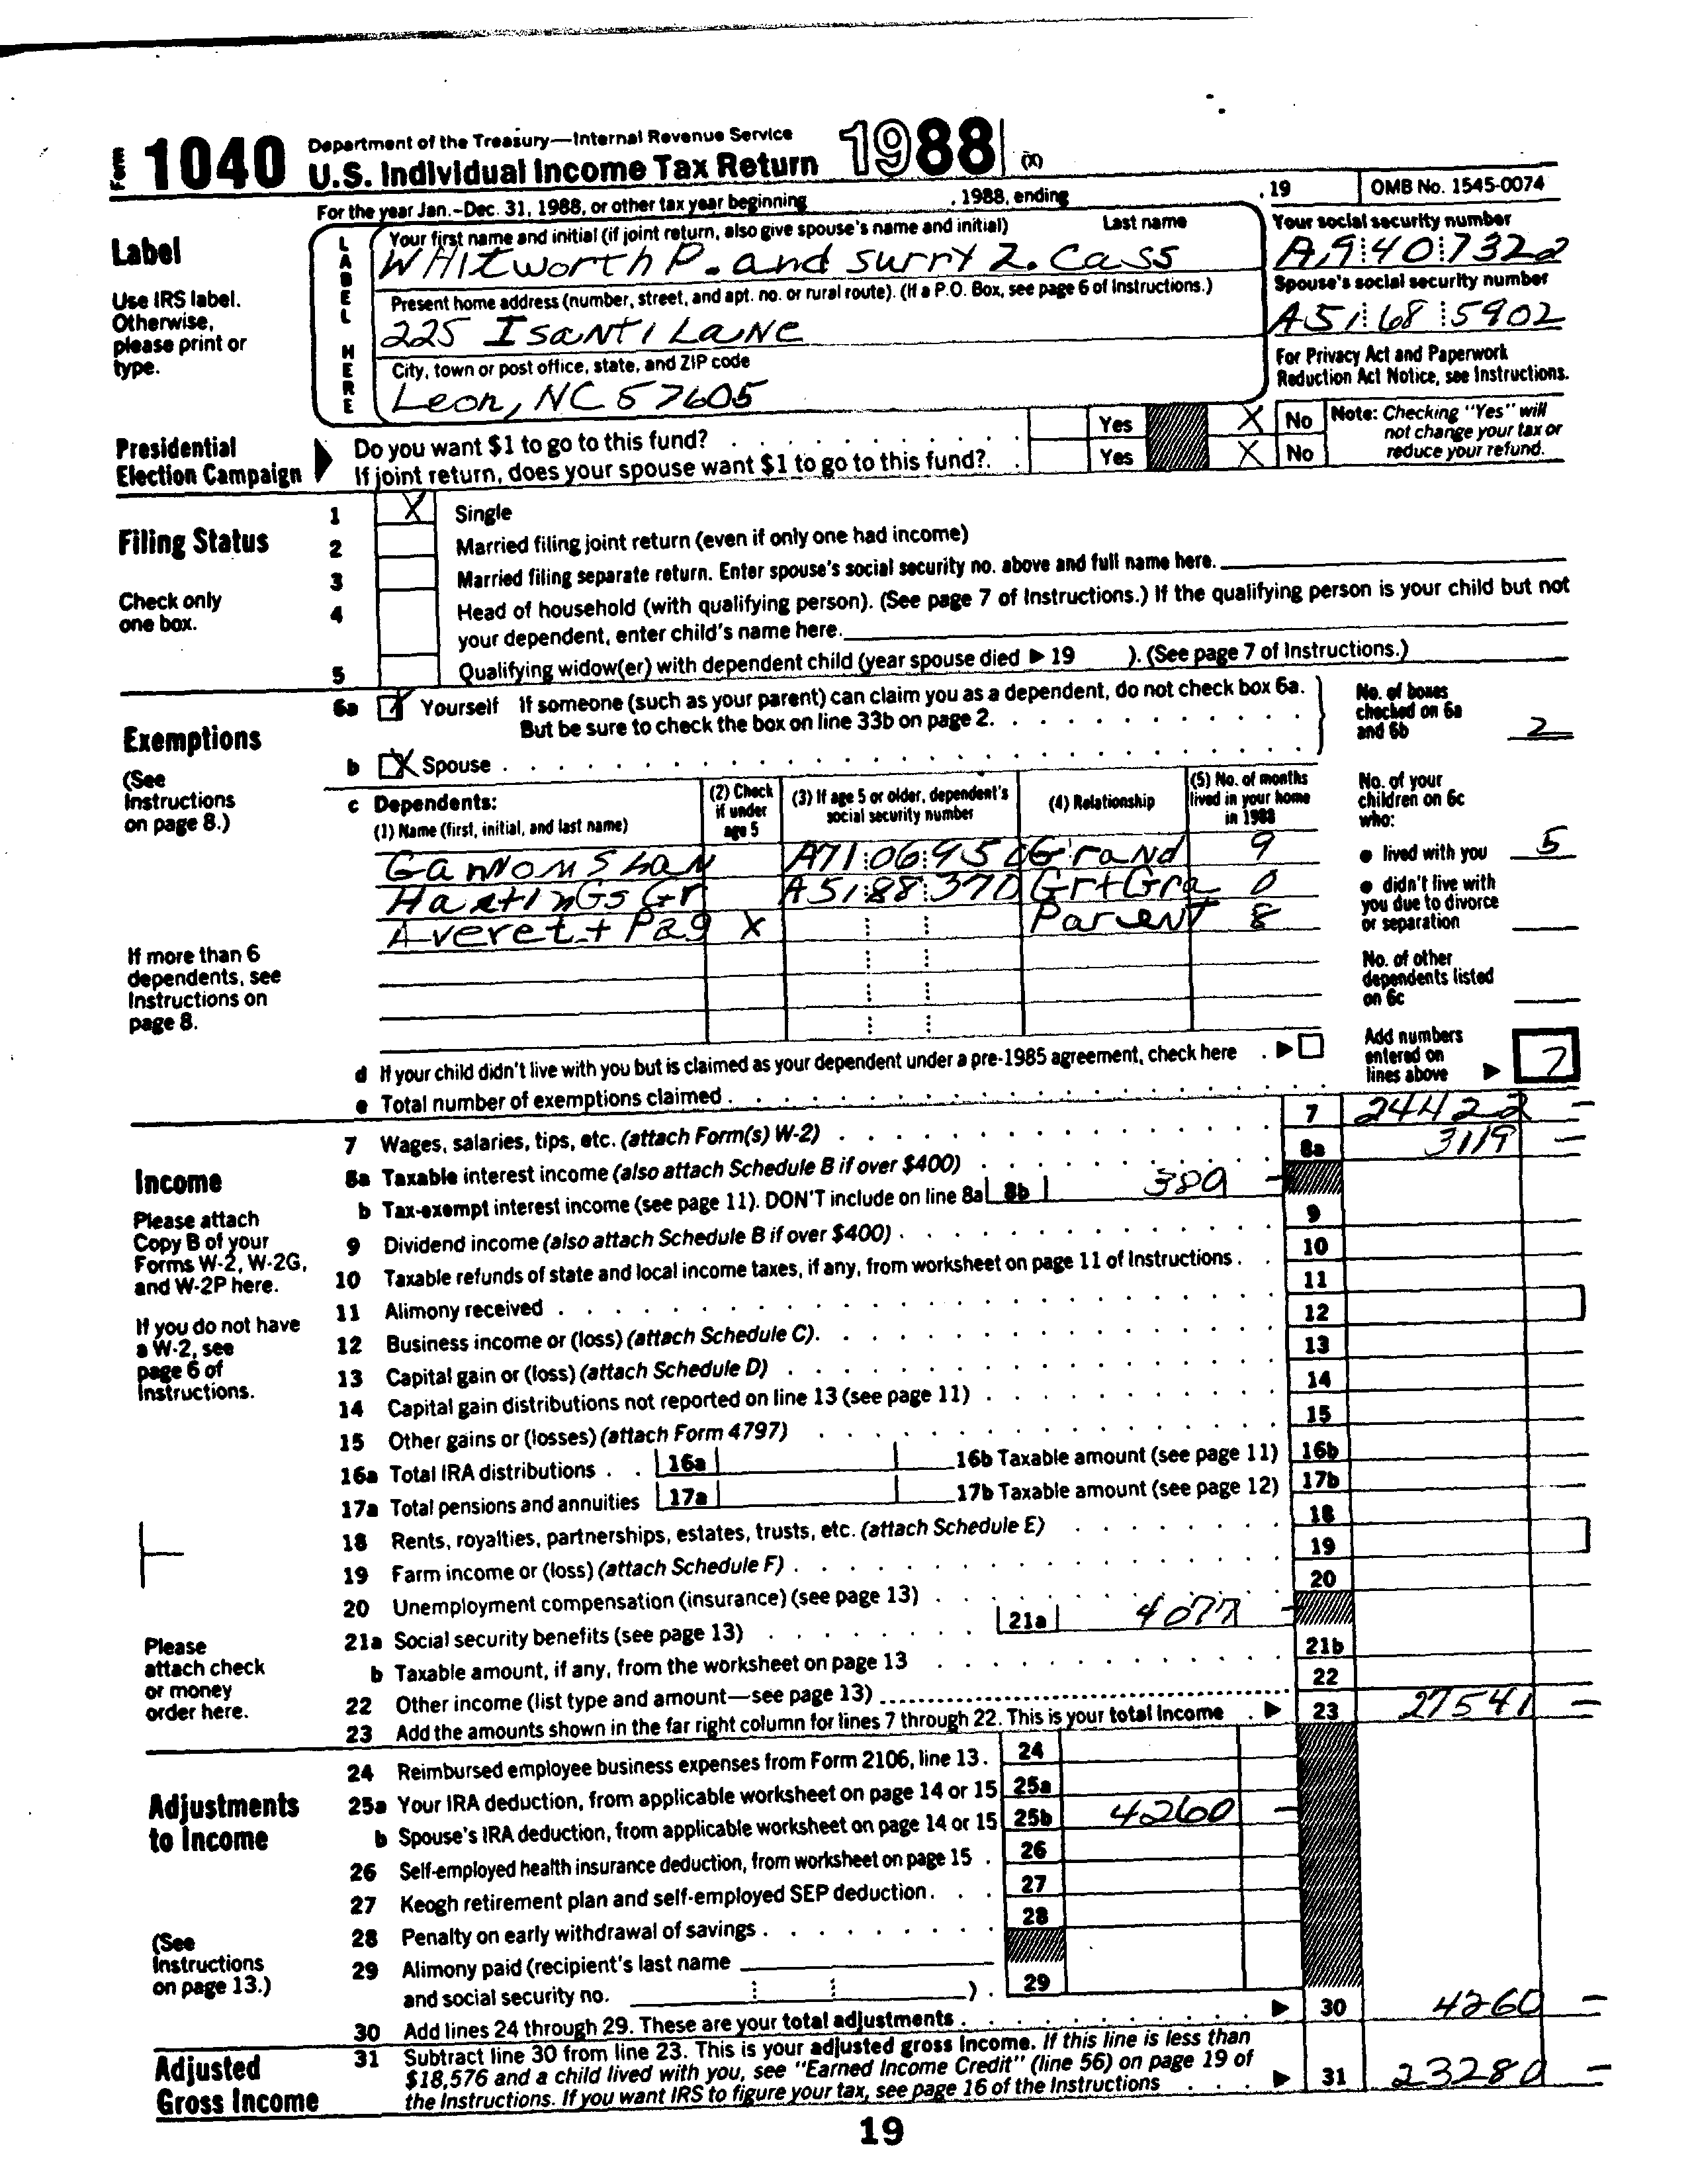 Form 1040 Department of the Treasury—Internal Revenue Service
U.S. Individual Income Tax Return 1988 (X)
For the year Jan.-Dec. 31, 1988, or other tax year beginning , 1988, ending , 19 OMB No. 1545-0074
Label
Use IRS label.
Otherwise,
please print or
type.
LABEL HERE
Your first name and initial (if joint return, also give spouse's name and initial) Last name
WHitworth P. and Surry Z. Cass
Your social security number
A,9 40 7322
Present home address (number, street, and apt. no. or rural route). (If a P.O. Box, see page 6 of Instructions.)
225 Isanti Lane
Spouse's social security number
A51 68 5902
City, town or post office, state, and ZIP code
Leon, NC 57605
For Privacy Act and Paperwork
Reduction Act Notice, see Instructions.
Presidential
Election Campaign
Do you want $1 to go to this fund? Yes X No
If joint return, does your spouse want $1 to go to this fund?. Yes X No
Note: Checking "Yes" will
not change your tax or
reduce your refund.
Filing Status
Check only
one box.
1 X Single
2 Married filing joint return (even if only one had income)
3 Married filing separate return. Enter spouse's social security no. above and full name here.
4 Head of household (with qualifying person). (See page 7 of Instructions.) If the qualifying person is your child but not
your dependent, enter child's name here.
5 Qualifying widow(er) with dependent child (year spouse died ▶ 19 ). (See page 7 of Instructions.)
Exemptions
(See
Instructions
on page 8.)
6a X Yourself If someone (such as your parent) can claim you as a dependent, do not check box 6a.
But be sure to check the box on line 33b on page 2.
b X Spouse
No. of boxes
checked on 6a
and 6b 2
c Dependents:
(1) Name (first, initial, and last name)
(2) Check
if under
age 5
(3) If age 5 or older, dependent's
social security number
(4) Relationship
(5) No. of months
lived in your home
in 1988
Gannon Shan A71 06 95 Grand 9
Hastings Gr A51 88 370 Gr+Gra 0
Averett Pag X Parent 8
If more than 6
dependents, see
Instructions on
page 8.
No. of your
children on 6c
who:
● lived with you 5
● didn't live with
you due to divorce
or separation
No. of other
dependents listed
on 6c
Add numbers
entered on
lines above ▶ 7
d If your child didn't live with you but is claimed as your dependent under a pre-1985 agreement, check here . ▶
e Total number of exemptions claimed
Income
Please attach
Copy B of your
Forms W-2, W-2G,
and W-2P here.
If you do not have
a W-2, see
page 6 of
Instructions.
7 Wages, salaries, tips, etc. (attach Form(s) W-2) 7 24422 —
8a Taxable interest income (also attach Schedule B if over $400) 8a 3119 —
b Tax-exempt interest income (see page 11). DON'T include on line 8a 8b 380 —
9 Dividend income (also attach Schedule B if over $400) 9
10 Taxable refunds of state and local income taxes, if any, from worksheet on page 11 of Instructions. 10
11 Alimony received 11
12 Business income or (loss) (attach Schedule C). 12
13 Capital gain or (loss) (attach Schedule D) 13
14 Capital gain distributions not reported on line 13 (see page 11) 14
15 Other gains or (losses) (attach Form 4797) 15
16a Total IRA distributions 16a 16b Taxable amount (see page 11) 16b
17a Total pensions and annuities 17a 17b Taxable amount (see page 12) 17b
18 Rents, royalties, partnerships, estates, trusts, etc. (attach Schedule E) 18
19 Farm income or (loss) (attach Schedule F) 19
20 Unemployment compensation (insurance) (see page 13) 20
21a Social security benefits (see page 13) 21a 4077 —
b Taxable amount, if any, from the worksheet on page 13 21b
22 Other income (list type and amount—see page 13) 22
23 Add the amounts shown in the far right column for lines 7 through 22. This is your total income ▶ 23 27541 —
Please
attach check
or money
order here.
Adjustments
to Income
(See
Instructions
on page 13.)
24 Reimbursed employee business expenses from Form 2106, line 13. 24
25a Your IRA deduction, from applicable worksheet on page 14 or 15 25a
b Spouse's IRA deduction, from applicable worksheet on page 14 or 15 25b 4260 —
26 Self-employed health insurance deduction, from worksheet on page 15 . 26
27 Keogh retirement plan and self-employed SEP deduction. 27
28 Penalty on early withdrawal of savings 28
29 Alimony paid (recipient's last name
and social security no. ). 29
30 Add lines 24 through 29. These are your total adjustments ▶ 30 4260 —
Adjusted
Gross Income
31 Subtract line 30 from line 23. This is your adjusted gross income. If this line is less than
$18,576 and a child lived with you, see "Earned Income Credit" (line 56) on page 19 of
the Instructions. If you want IRS to figure your tax, see page 16 of the Instructions ▶ 31 23280 —
19